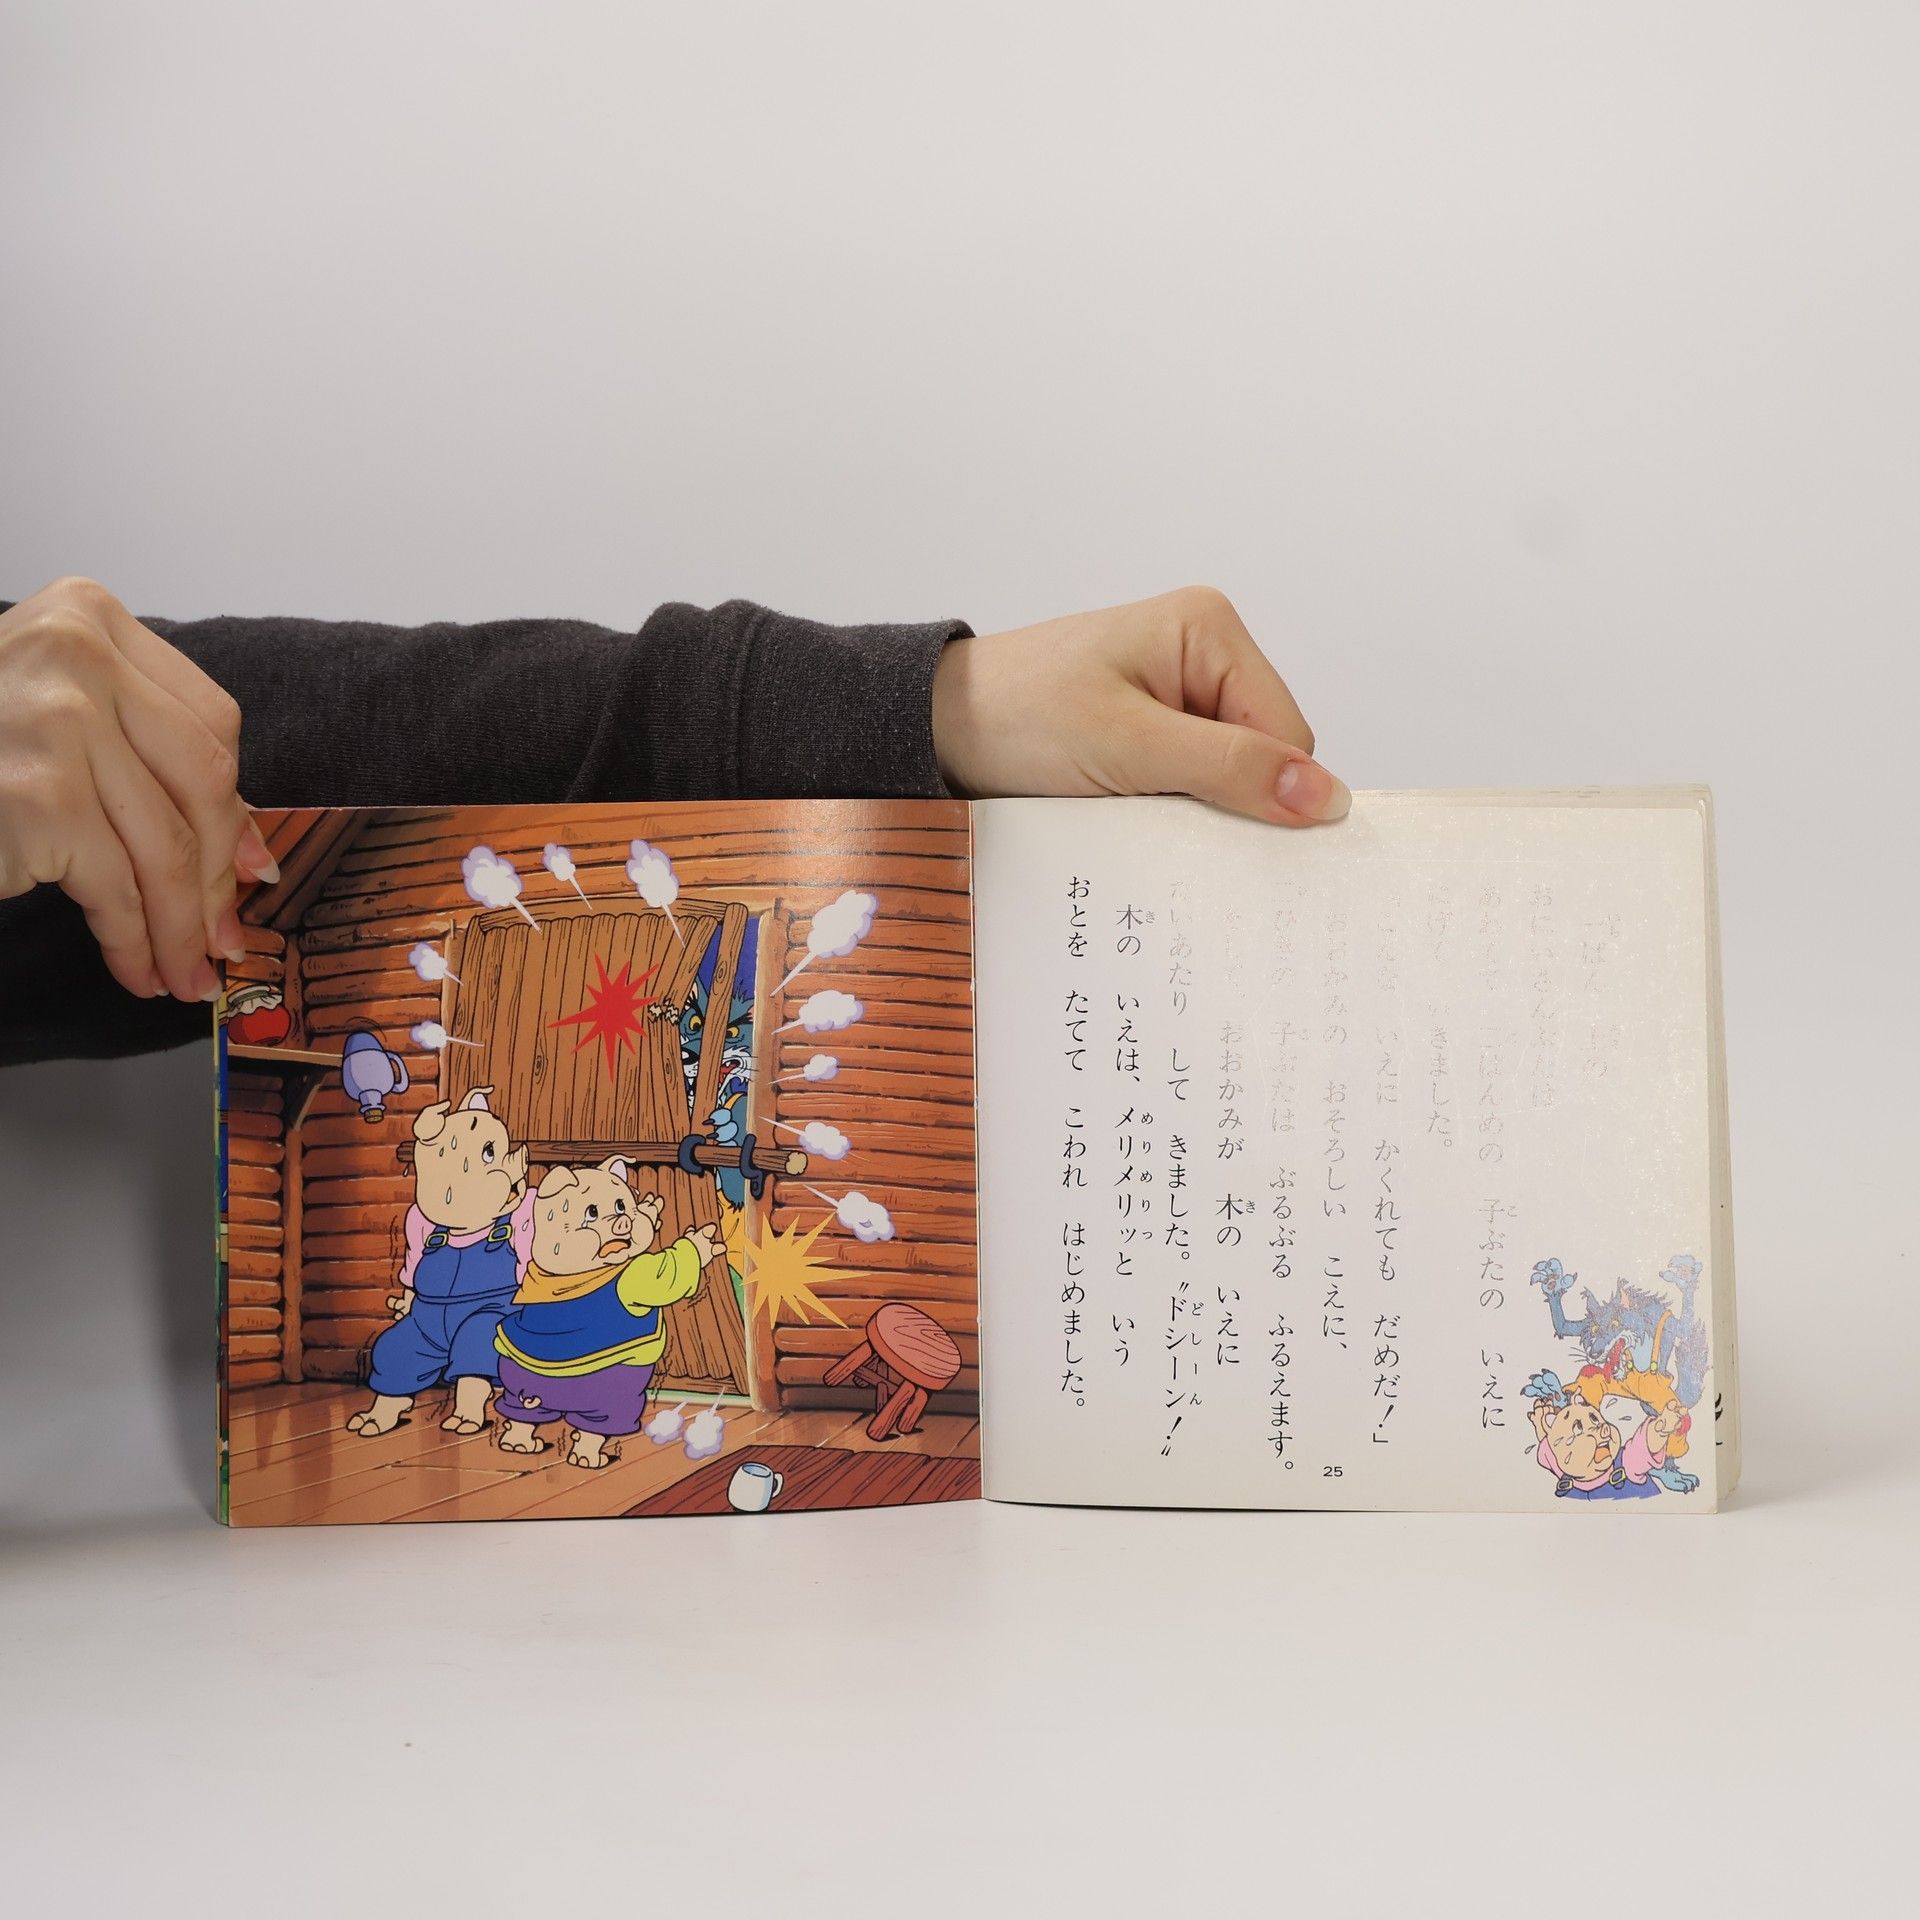 一ばん 上の
おにいさんぶたは
あわてて 二ばんめの 子ぶたの いえに
にげて いきました。
「こんな いえに かくれても だめだ!」
おおかみの おそろしい こえに、
二ひきの 子ぶたは ぶるぶる ふるえます。
そして、 おおかみが 木の いえに
たいあたり して きました。〝ドシーン!〟
木の いえは、 メリメリッと いう
おとを たてて こわれ はじめました。
25